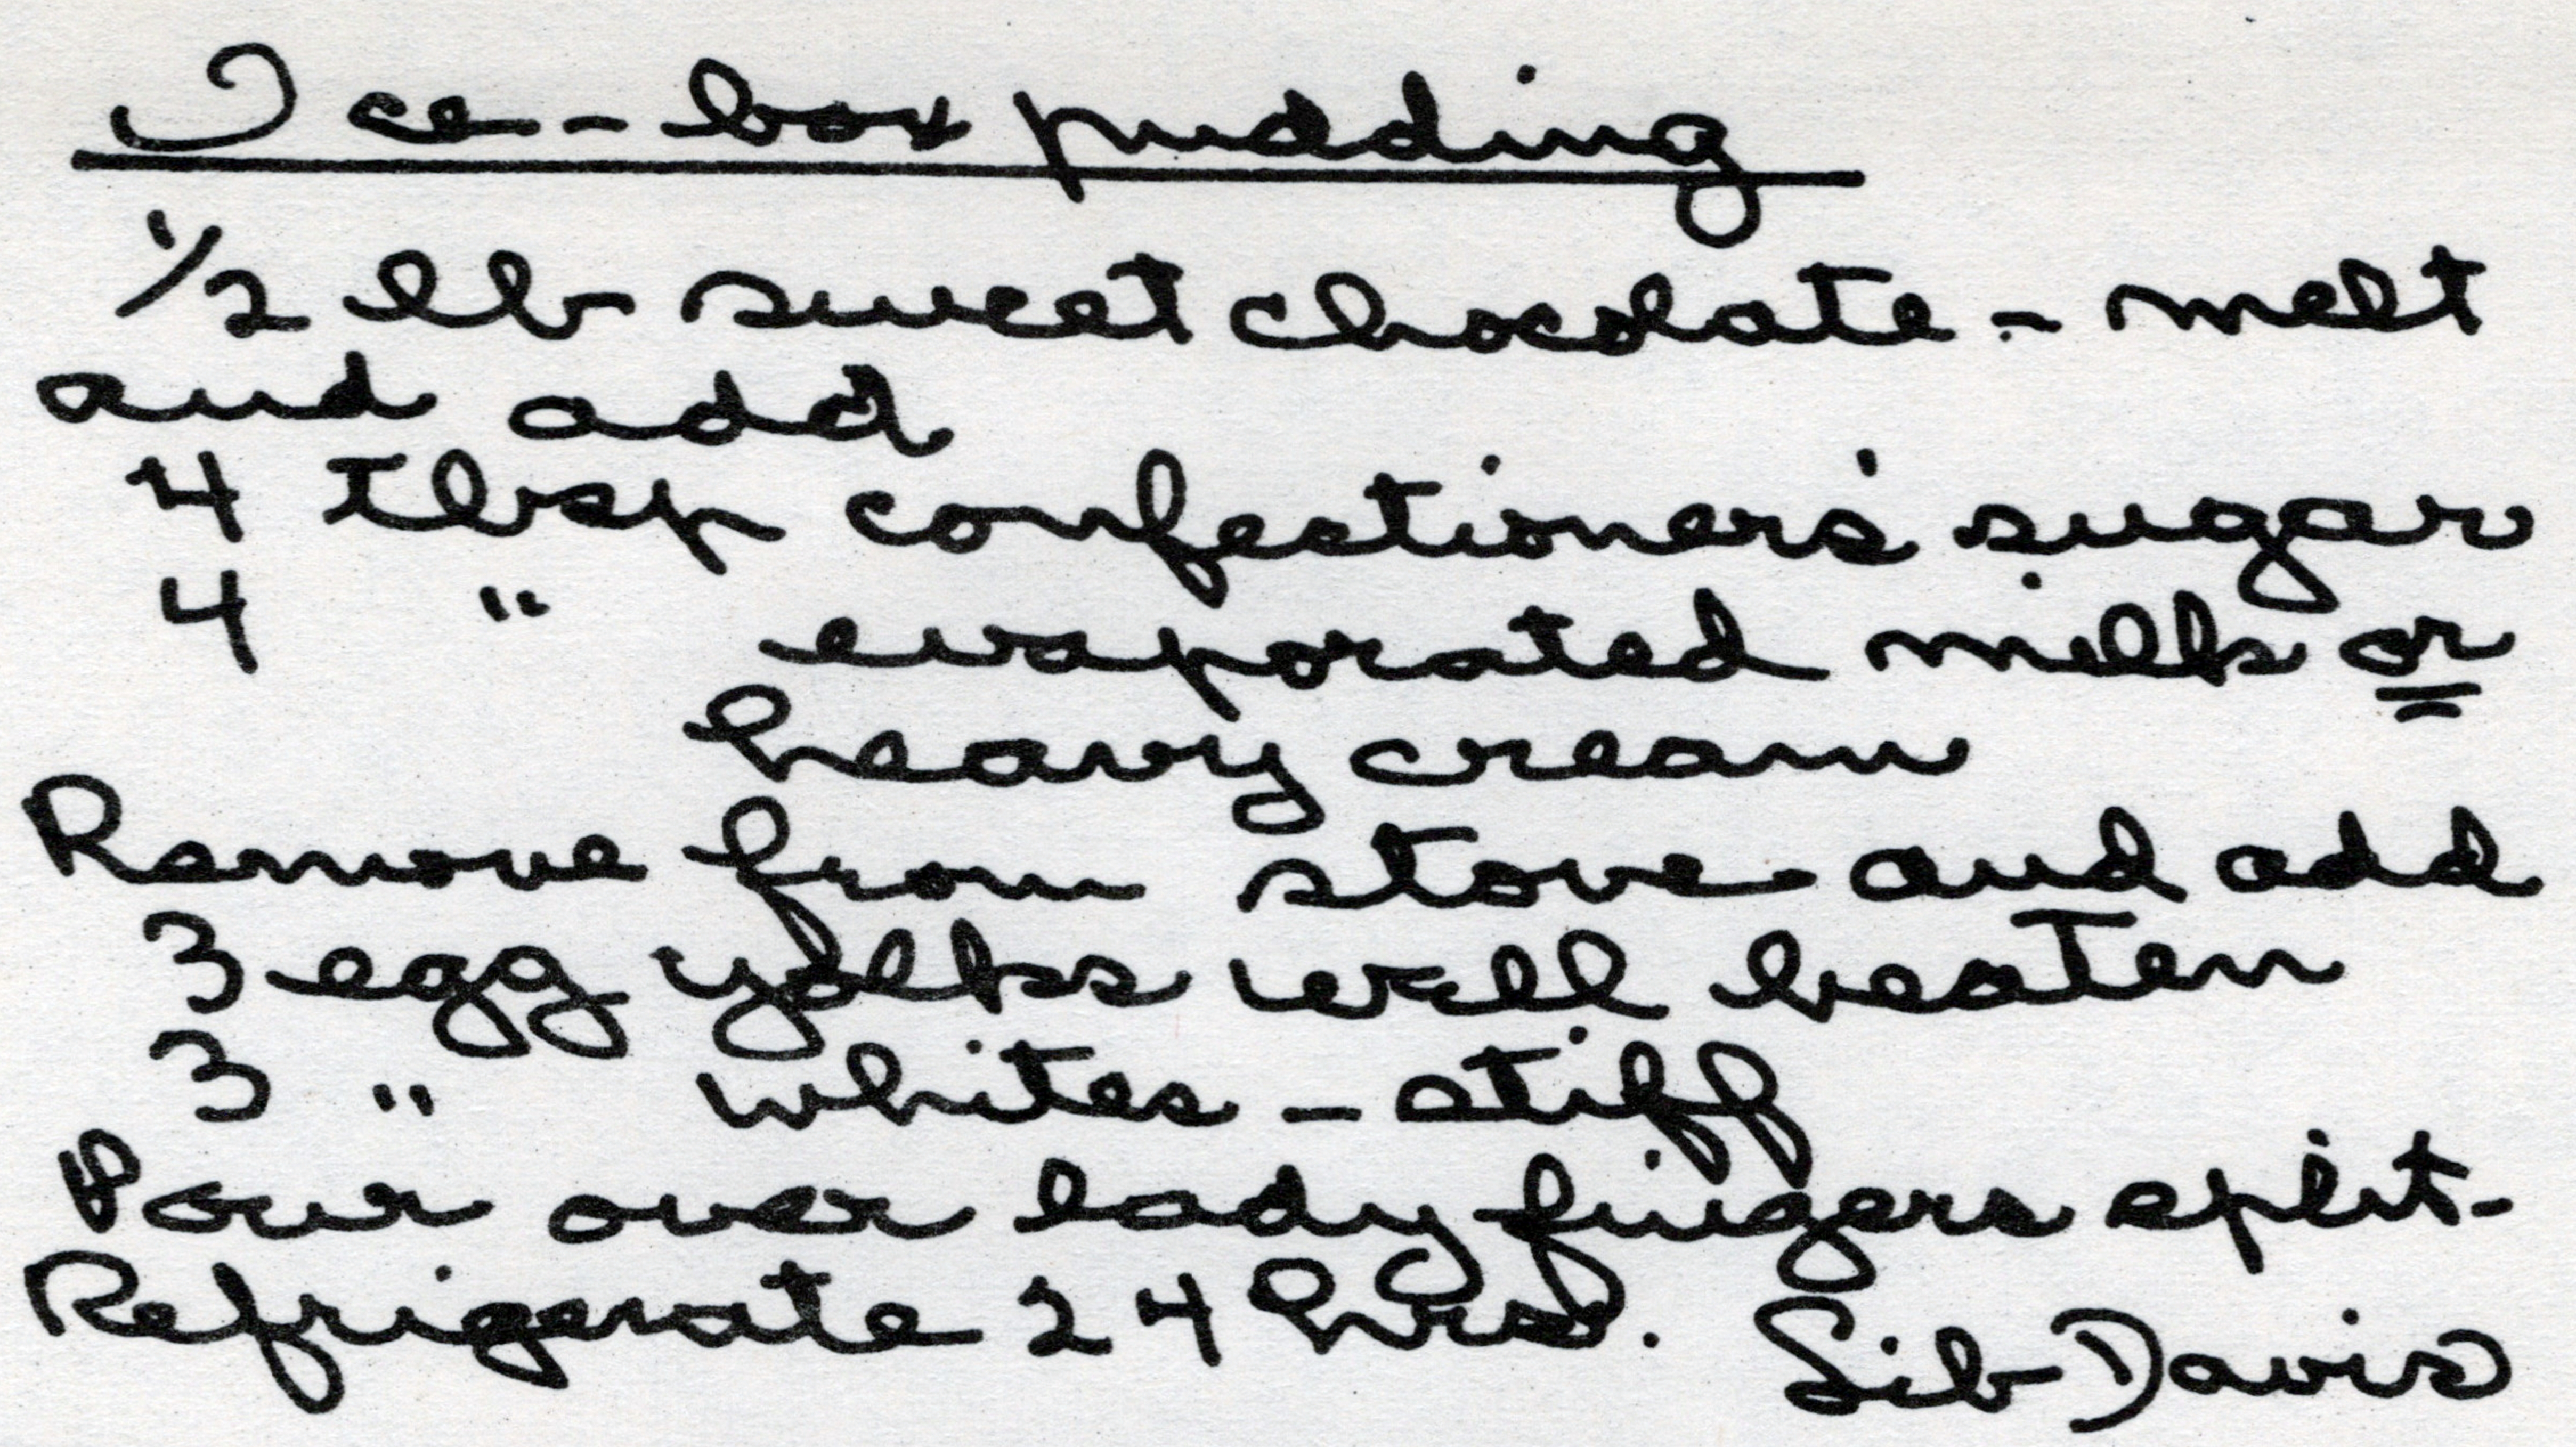 Ice-box pudding
1/2 lb sweet chocolate - melt
and add
4 tbsp confectioner's sugar
4 " evaporated milk or
heavy cream
Remove from stove and add
3 egg yolks well beaten
3 " whites - stiff
Pour over lady fingers split-
Refrigerate 24 hrs. Sib Davis